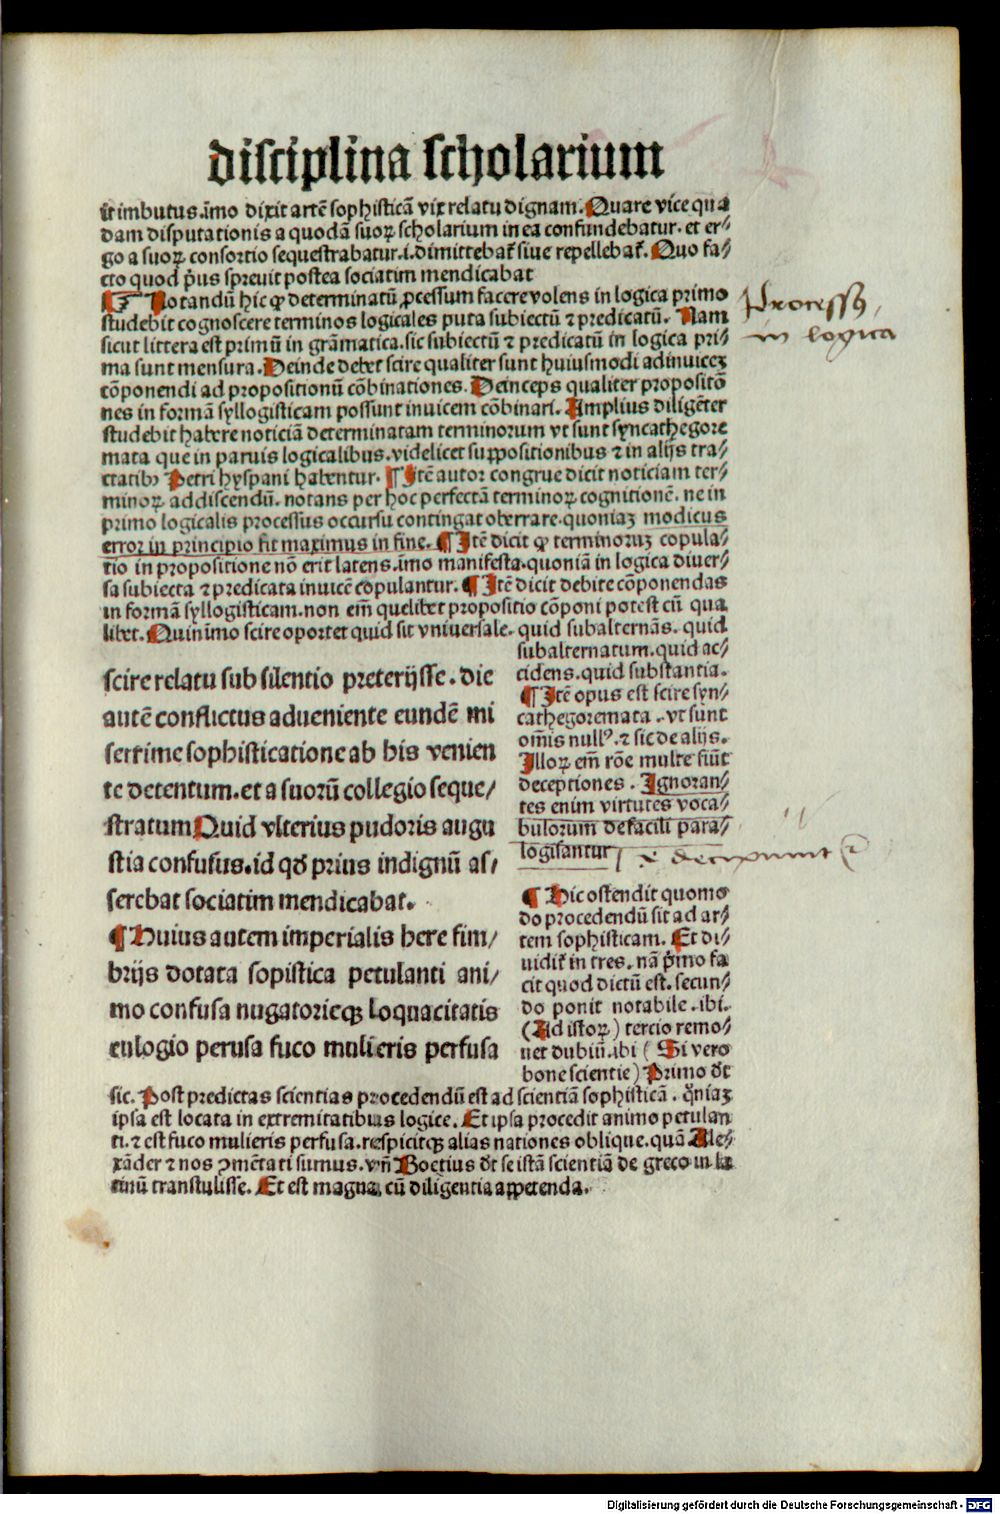 disciplina scholarium
it imbutus.īmo dixit artē sophisticā vix relatu dignam. Quare vice qua
dam disputationis a quodā suoꝝ scholarium in ea confundebatur. et er⸗
go a suoꝝ consortio sequestrabatur.i.dimittebaẗ siue repellebaẗ. Quo fa⸗
cto quod pͥus spreuit postea sociatim mendicabat
¶ Notandū hic ꝙ determinatū ꝓcessum facere volens in logica primo
studebit cognoscere terminos logicales puta subiectū ⁊ predicatū. Nam
sicut littera est primū in grāmatica.sic subiectū ⁊ predicatū in logica pri⸗
ma sunt mensura. Deinde debet scire qualiter sunt huiusmodi adinuiceꝫ
cōponendi ad propositionū cōbinationes. Deinceps qualiter propositō
nes in formā syllogisticam possunt inuicem cōbinari. Amplius diligēter
studebit habere noticiā determinatam terminorum vt sunt syncathegore
mata que in paruis logicalibus.videlicet suppositionibus ⁊ in alijs tra⸗
ctatibꝰ Petri hyspani habentur. ¶ Itē autor congrue dicit noticiam ter⸗
minoꝝ addiscendū. notans per hoc perfectā terminoꝝ cognitionē. ne in
primo logicalis processus occursu contingat oberrare.quoniaꝫ modicus
error in principio fit maximus in fine. ¶ Itē dicit ꝙ terminoruꝫ copula⸗
tio in propositione nō erit latens.imo manifesta.quoniā in logica diuer⸗
sa subiecta ⁊ predicata inuicē copulantur. ¶ Itē dicit debite cōponendas
in formā syllogisticam.non em̄ quelibet propositio cōponi potest cū qua
libet. Quinimo scire oportet quid sit vniuersale. quid subalternās. quid
subalternatum.quid ac⸗
cidens.quid substantia.
¶ Itē opus est scire syn⸗
cathegoremata .vt sunt
om̄is nullꝰ.⁊ sic de alijs.
Illoꝝ em̄ rōe multe fiūt
deceptiones . Ignoran⸗
tes enim virtutes voca⸗
bulorum defacili para⸗
logisantur
scire relatu sub silentio preterijsse. die
autē conflictus adueniente eundē mi
serrime sophisticatione ab his venien
te detentum.et a suorū collegio seque⸗
stratum Quid vlterius pudoris angu
stia confusus.id qd̄ prius indignū as⸗
serebat sociatim mendicabat.
¶ Huius autem imperialis here fim⸗
brijs dotata sopistica petulanti ani⸗
mo confusa nugatorieqꝫ loquacitatis
eulogio perusa fuco mulieris perfusa
¶ Hic ostendit quomo
do procedendū sit ad ar⸗
tem sophisticam. Et di⸗
uidiẗ in tres. nā pͥmo fa
cit quod dictū est. secun⸗
do ponit notabile .ibi.
(Ad istoꝝ) tercio remo⸗
uet dubiū.ibi (Si vero
bone scientie) Primo dt̄
sic. Post predictas scientias procedendū est ad scientiā sophisticā . qm̄iaꝫ
ipsa est locata in extremitatibus logice. Et ipsa procedit animo petulan
ti. ⁊ est fuco mulieris perfusa.respicitqꝫ alias nationes oblique.quā Ale⸗
xāder ⁊ nos ꝯmētati sumus. vn̄ Boetius dt̄ se istā scientiā de greco in la
tinū transtulisse. Et est magna cū diligentia appetenda.
Processꝰ
in logica
⁊ decipiunt
Digitalisierung gefördert durch die Deutsche Forschungsgemeinschaft - DFG